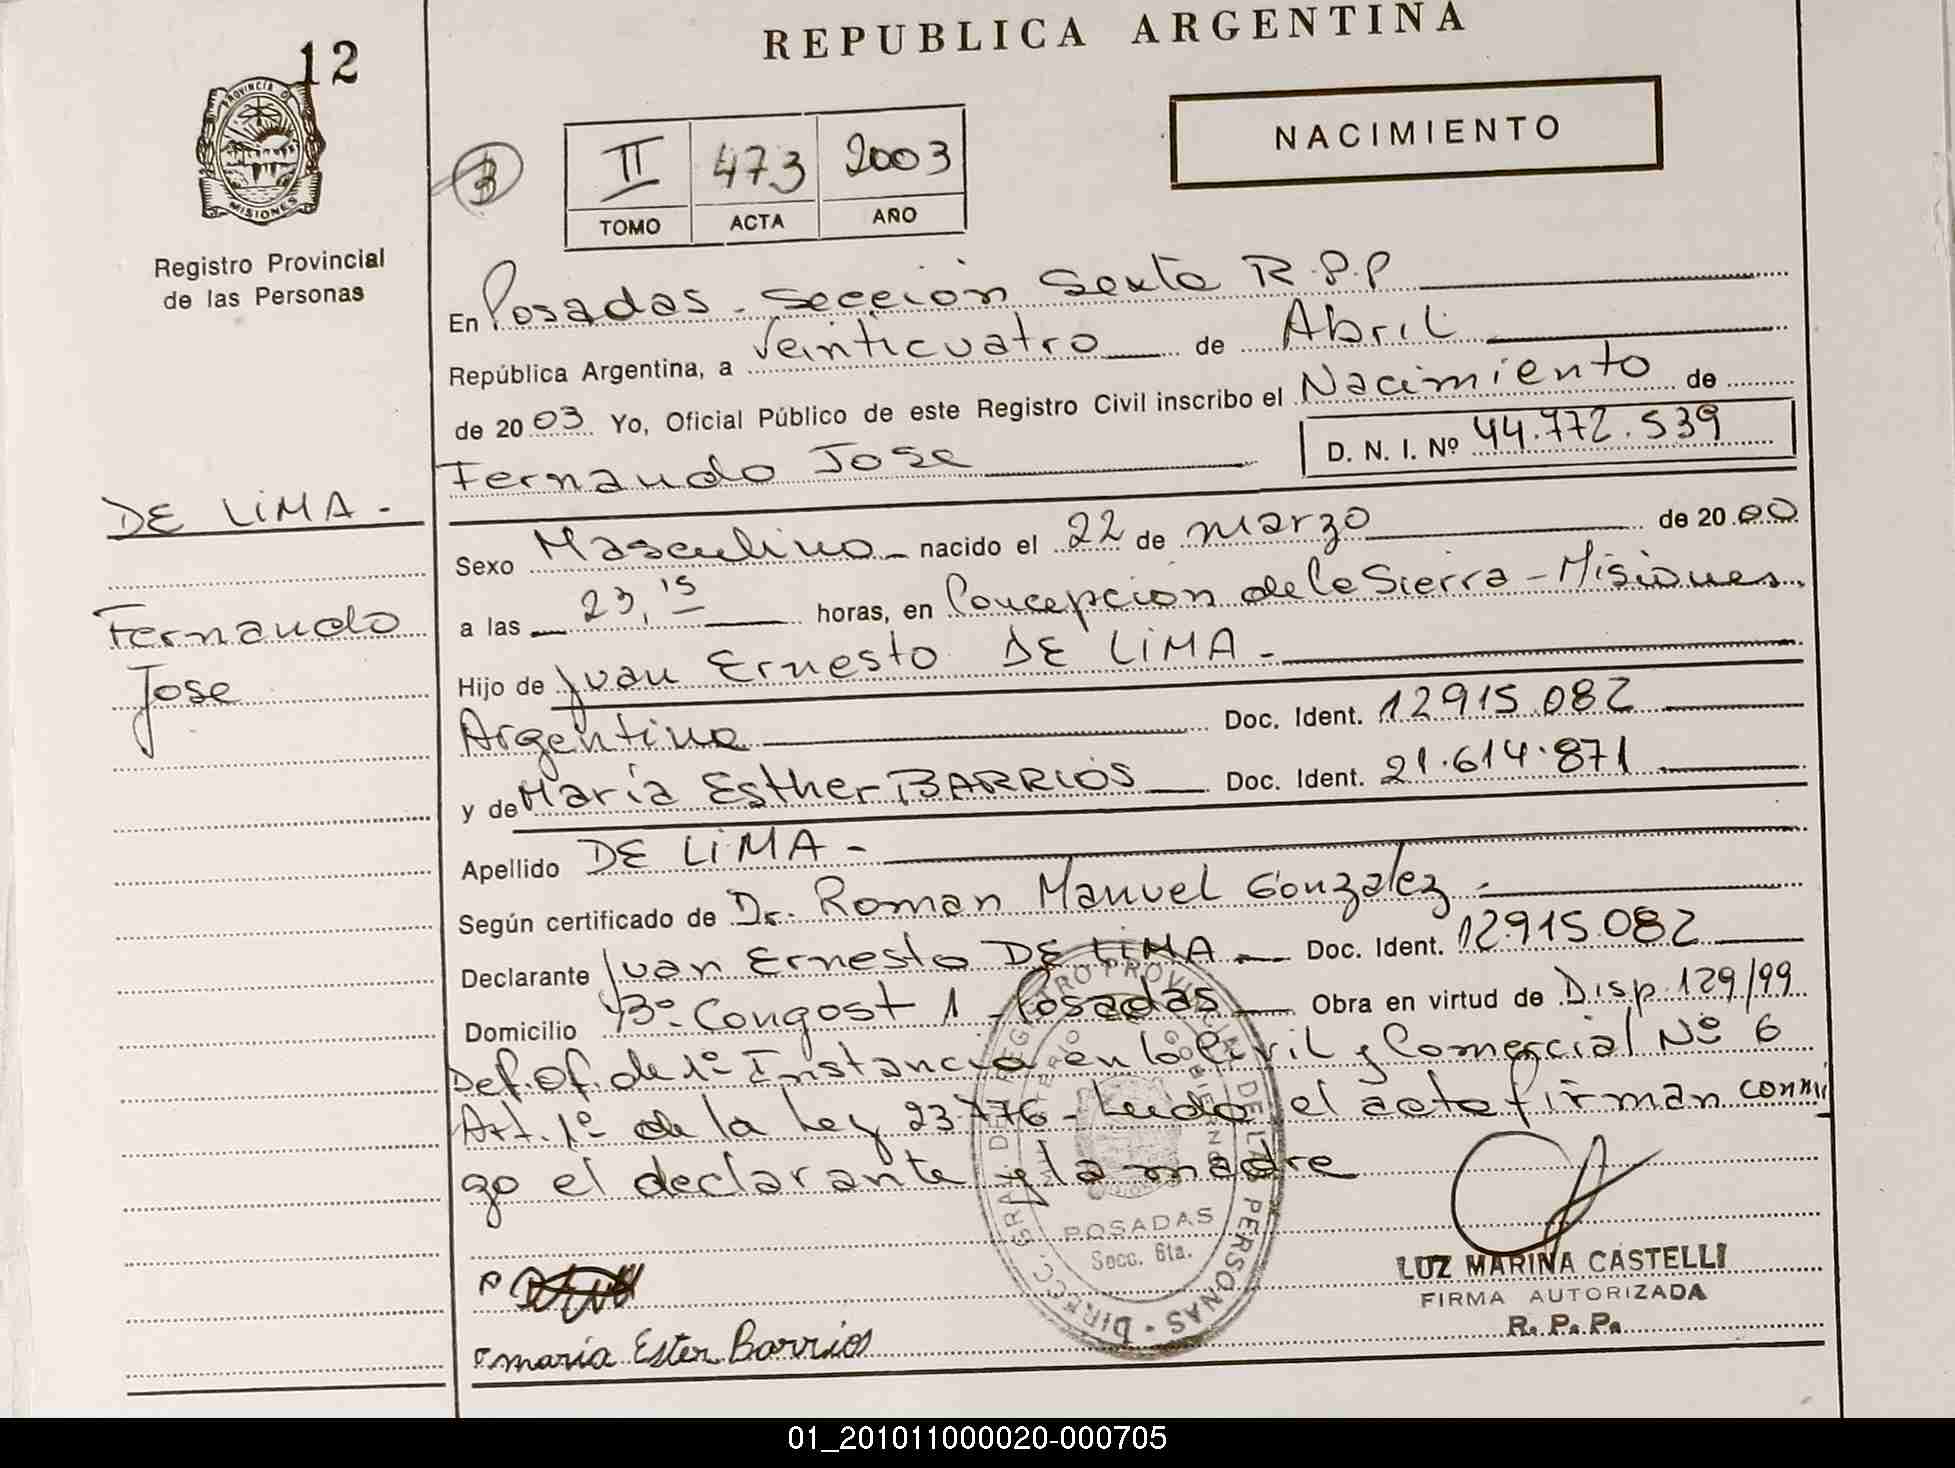 REPUBLICA ARGENTINA
12
PROVINCIA DE
MISIONES
Registro Provincial
de las Personas
NACIMIENTO
II 473 2003
TOMO ACTA AÑO
En Posadas - Sección Sexta R.P.P
República Argentina, a veinticuatro de Abril
de 2003 Yo, Oficial Público de este Registro Civil inscribo el Nacimiento de
Fernando Jose D. N. I. Nº 44.772.539
DE LiMA -
Fernando
Jose
Sexo Masculino nacido el 22 de marzo de 2000
a las 23,15 horas, en Concepción de la Sierra - Misiones.
Hijo de Juan Ernesto DE LiMA -
Argentino Doc. Ident. 12915.082
y de María Esther BARRIOS Doc. Ident. 21.614.871
Apellido DE LiMA -
Según certificado de Dr. Roman Manuel Gonzalez -
Declarante Juan Ernesto DE LiMA Doc. Ident. 12.915.082
Domicilio Bº Congost 1 - Posadas Obra en virtud de Disp 129/99
Def. of. de 1º Instancia en lo Civil y Comercial Nº 6
Art. 1º de la Ley 23776 - Leido el acto firman conmi
go el declarante y la madre
DIRECC. GRAL DE REGISTRO PROVINCIAL DE LAS PERSONAS
POSADAS
Secc. 6ta.
LUZ MARINA CASTELLI
FIRMA AUTORIZADA
R. P. P.
maria Ester Barrios
01_201011000020-000705